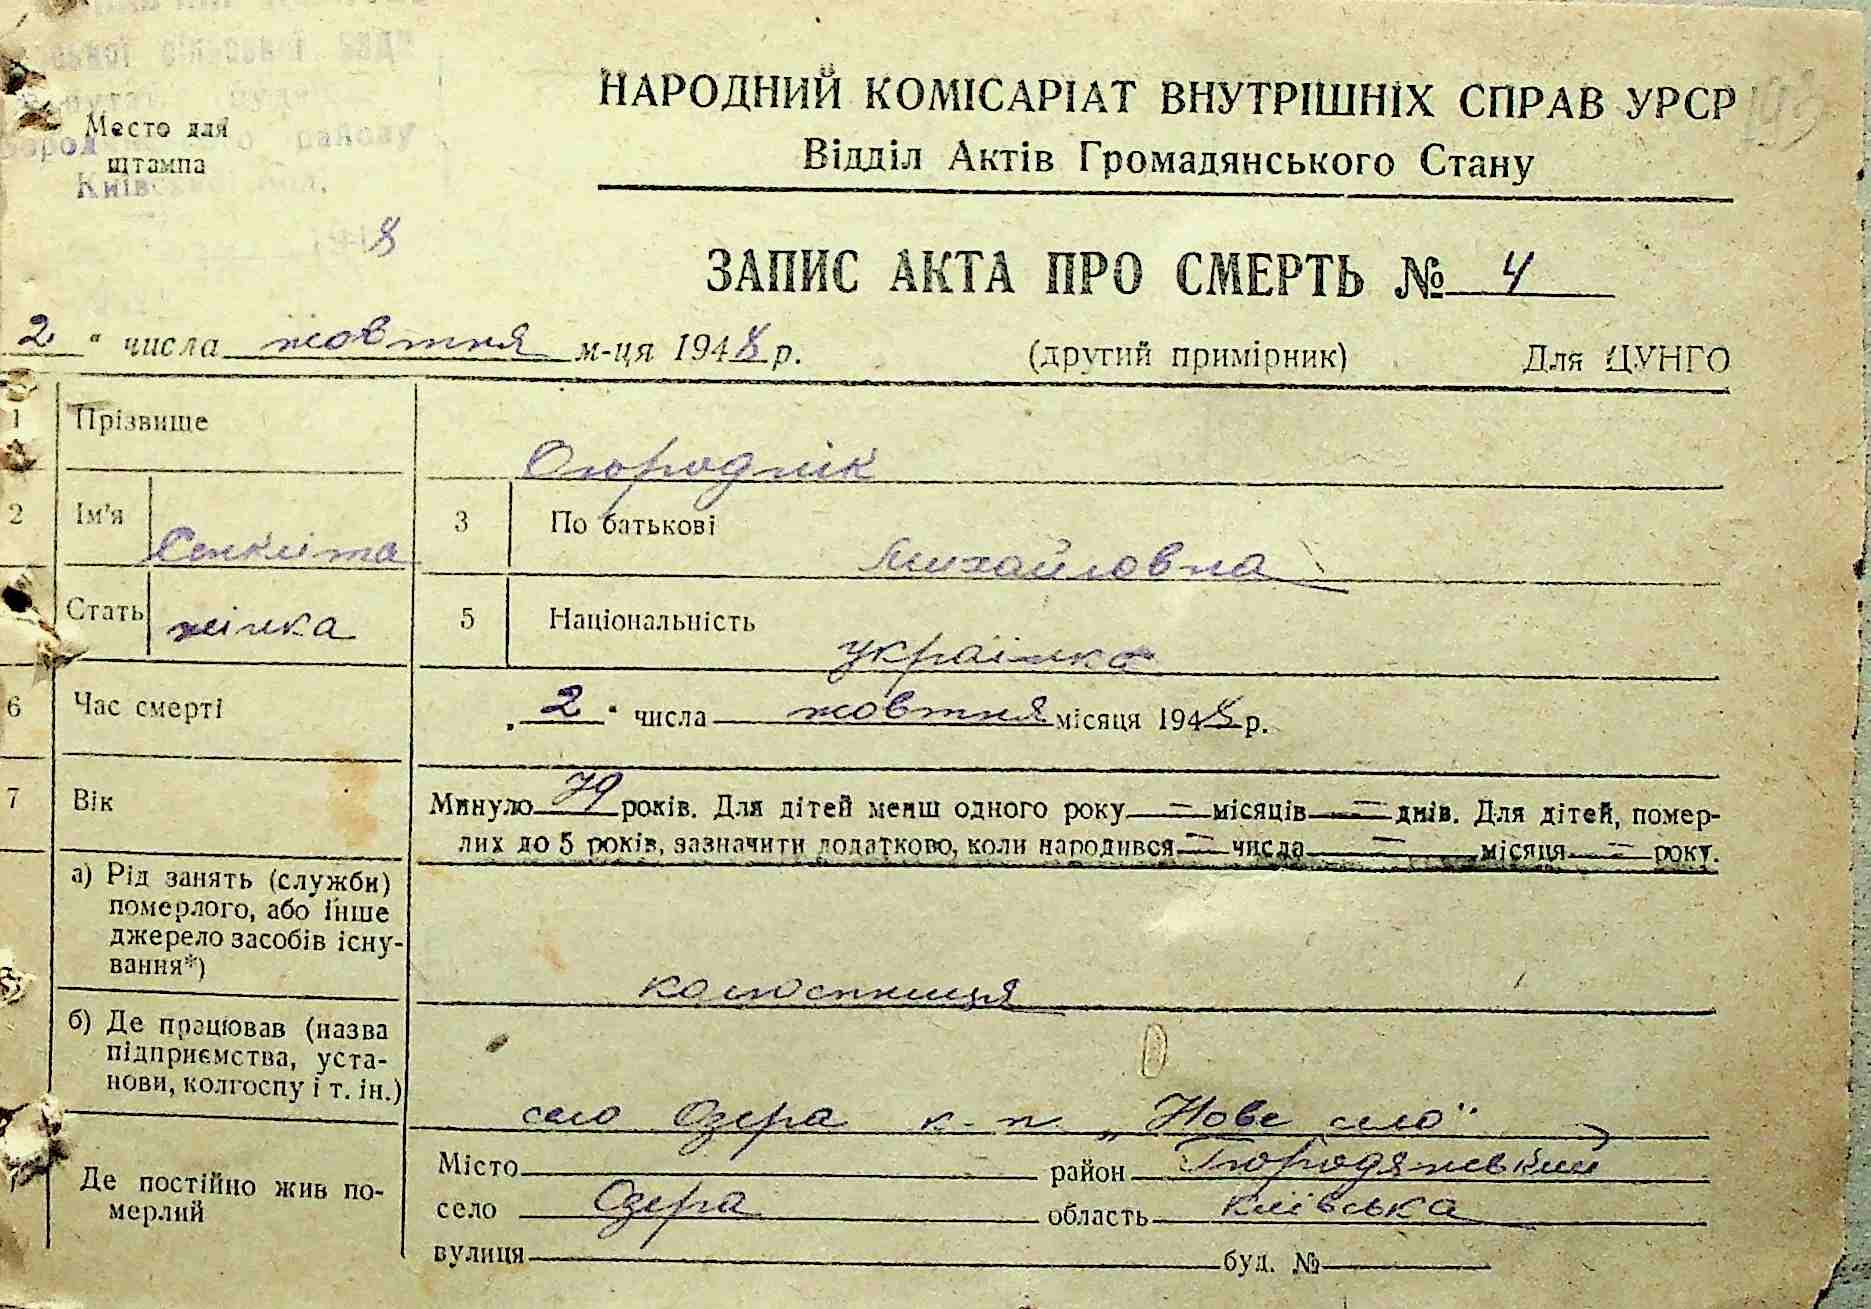 сільської
району
Київської обл.
Место для
штампа
1948
НАРОДНИЙ КОМІСАРІАТ ВНУТРІШНІХ СПРАВ УРСР
Відділ Актів Громадянського Стану
ЗАПИС АКТА ПРО СМЕРТЬ № 4
2 " числа жовтня м-ця 1948 р. (другий примірник) Для ЦУНГО
1 Прізвище Огороднік
2 Ім'я 3 По батькові Михайловна
Стать жінка 5 Національність українка
6 Час смерті „ 2 " числа жовтня місяця 1948 р.
7 Вік Минуло 79 років. Для дітей менш одного року = місяців = днів. Для дітей, помер-
лих до 5 років, зазначити додатково, коли народився = числа = місяця = року.
а) Рід занять (служби)
померлого, або інше
джерело засобів існу-
вання*)
колгоспниця
б) Де працював (назва
підприємства, уста-
нови, колгоспу і т. ін.)
село Озера к-п „Нове село"
Де постійно жив по-
мерлий
Місто район Бородянський
село Озера область київська
вулиця буд. №